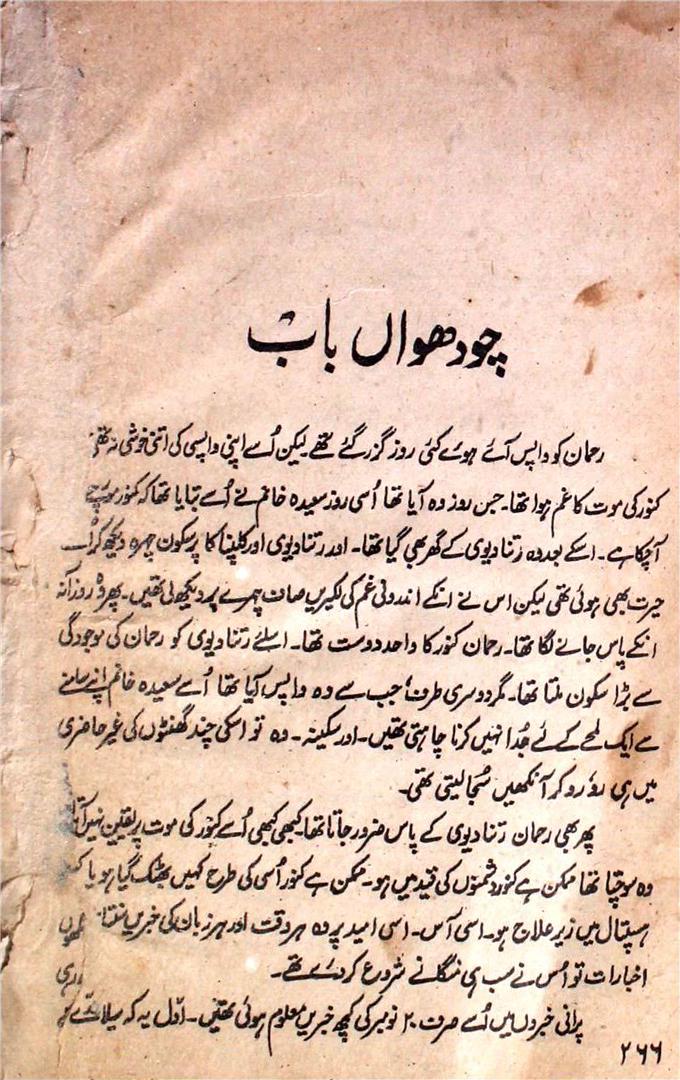 چودھواں باب
رحمان کو واپس آئے ہوئے کئی روز گزر گئے تھے لیکن اُسے اپنی واپسی کی اتنی خوشی نہ تھی
کنور کی موت کا غم ہوا تھا۔ جس روز وہ آیا تھا اُسی روز سعیدہ خانم نے اُسے بتایا تھا کہ کنور
آچکا ہے۔ اسکے بعد وہ رتنا دیوی کے گھر بھی گیا تھا۔ اور رتنا دیوی اور کلپنا کا پر سکون چہرہ دیکھ کر اُسے
حیرت بھی ہوئی تھی لیکن اس نے انکے اندرونی غم کی لکیریں صاف چہرے پر دیکھ لی تھیں۔ پھر وہ روزانہ
انکے پاس جانے لگا تھا۔ رحمان کنور کا واحد دوست تھا۔ اسلئے رتنا دیوی کو رحمان کی موجودگی
سے بڑا سکون ملتا تھا۔ مگر دوسری طرف، جب سے وہ واپس آیا تھا اُسے سعیدہ خانم اپنے سامنے
سے ایک لمحے کے لئے جُدا نہیں کرنا چاہتی تھیں۔ اور سکینہ۔ وہ تو اسکی چند گھنٹوں کی غیر حاضری
میں ہی رو رو کر آنکھیں سُجا لیتی تھی۔
پھر بھی رحمان رتنا دیوی کے پاس ضرور جاتا تھا۔ کبھی کبھی اُسے کنور کی موت پر یقین نہیں آتا
وہ سوچتا تھا ممکن ہے کنور دشمنوں کی قید میں ہو۔ ممکن ہے کنور اُسی کی طرح کہیں بھٹک گیا ہو یا
ہسپتال میں زیر علاج ہو۔ اسی آس۔ اسی امید پر وہ ہر وقت اور ہر زبان کی خبریں سنتا
اخبارات تو اُس نے سب ہی منگانے شروع کر دئے تھے۔
پرانی خبروں میں اُسے صرف ۲۰ نومبر کی کچھ خبریں معلوم ہوئی تھیں۔ اوّل یہ کہ
۲۶۶